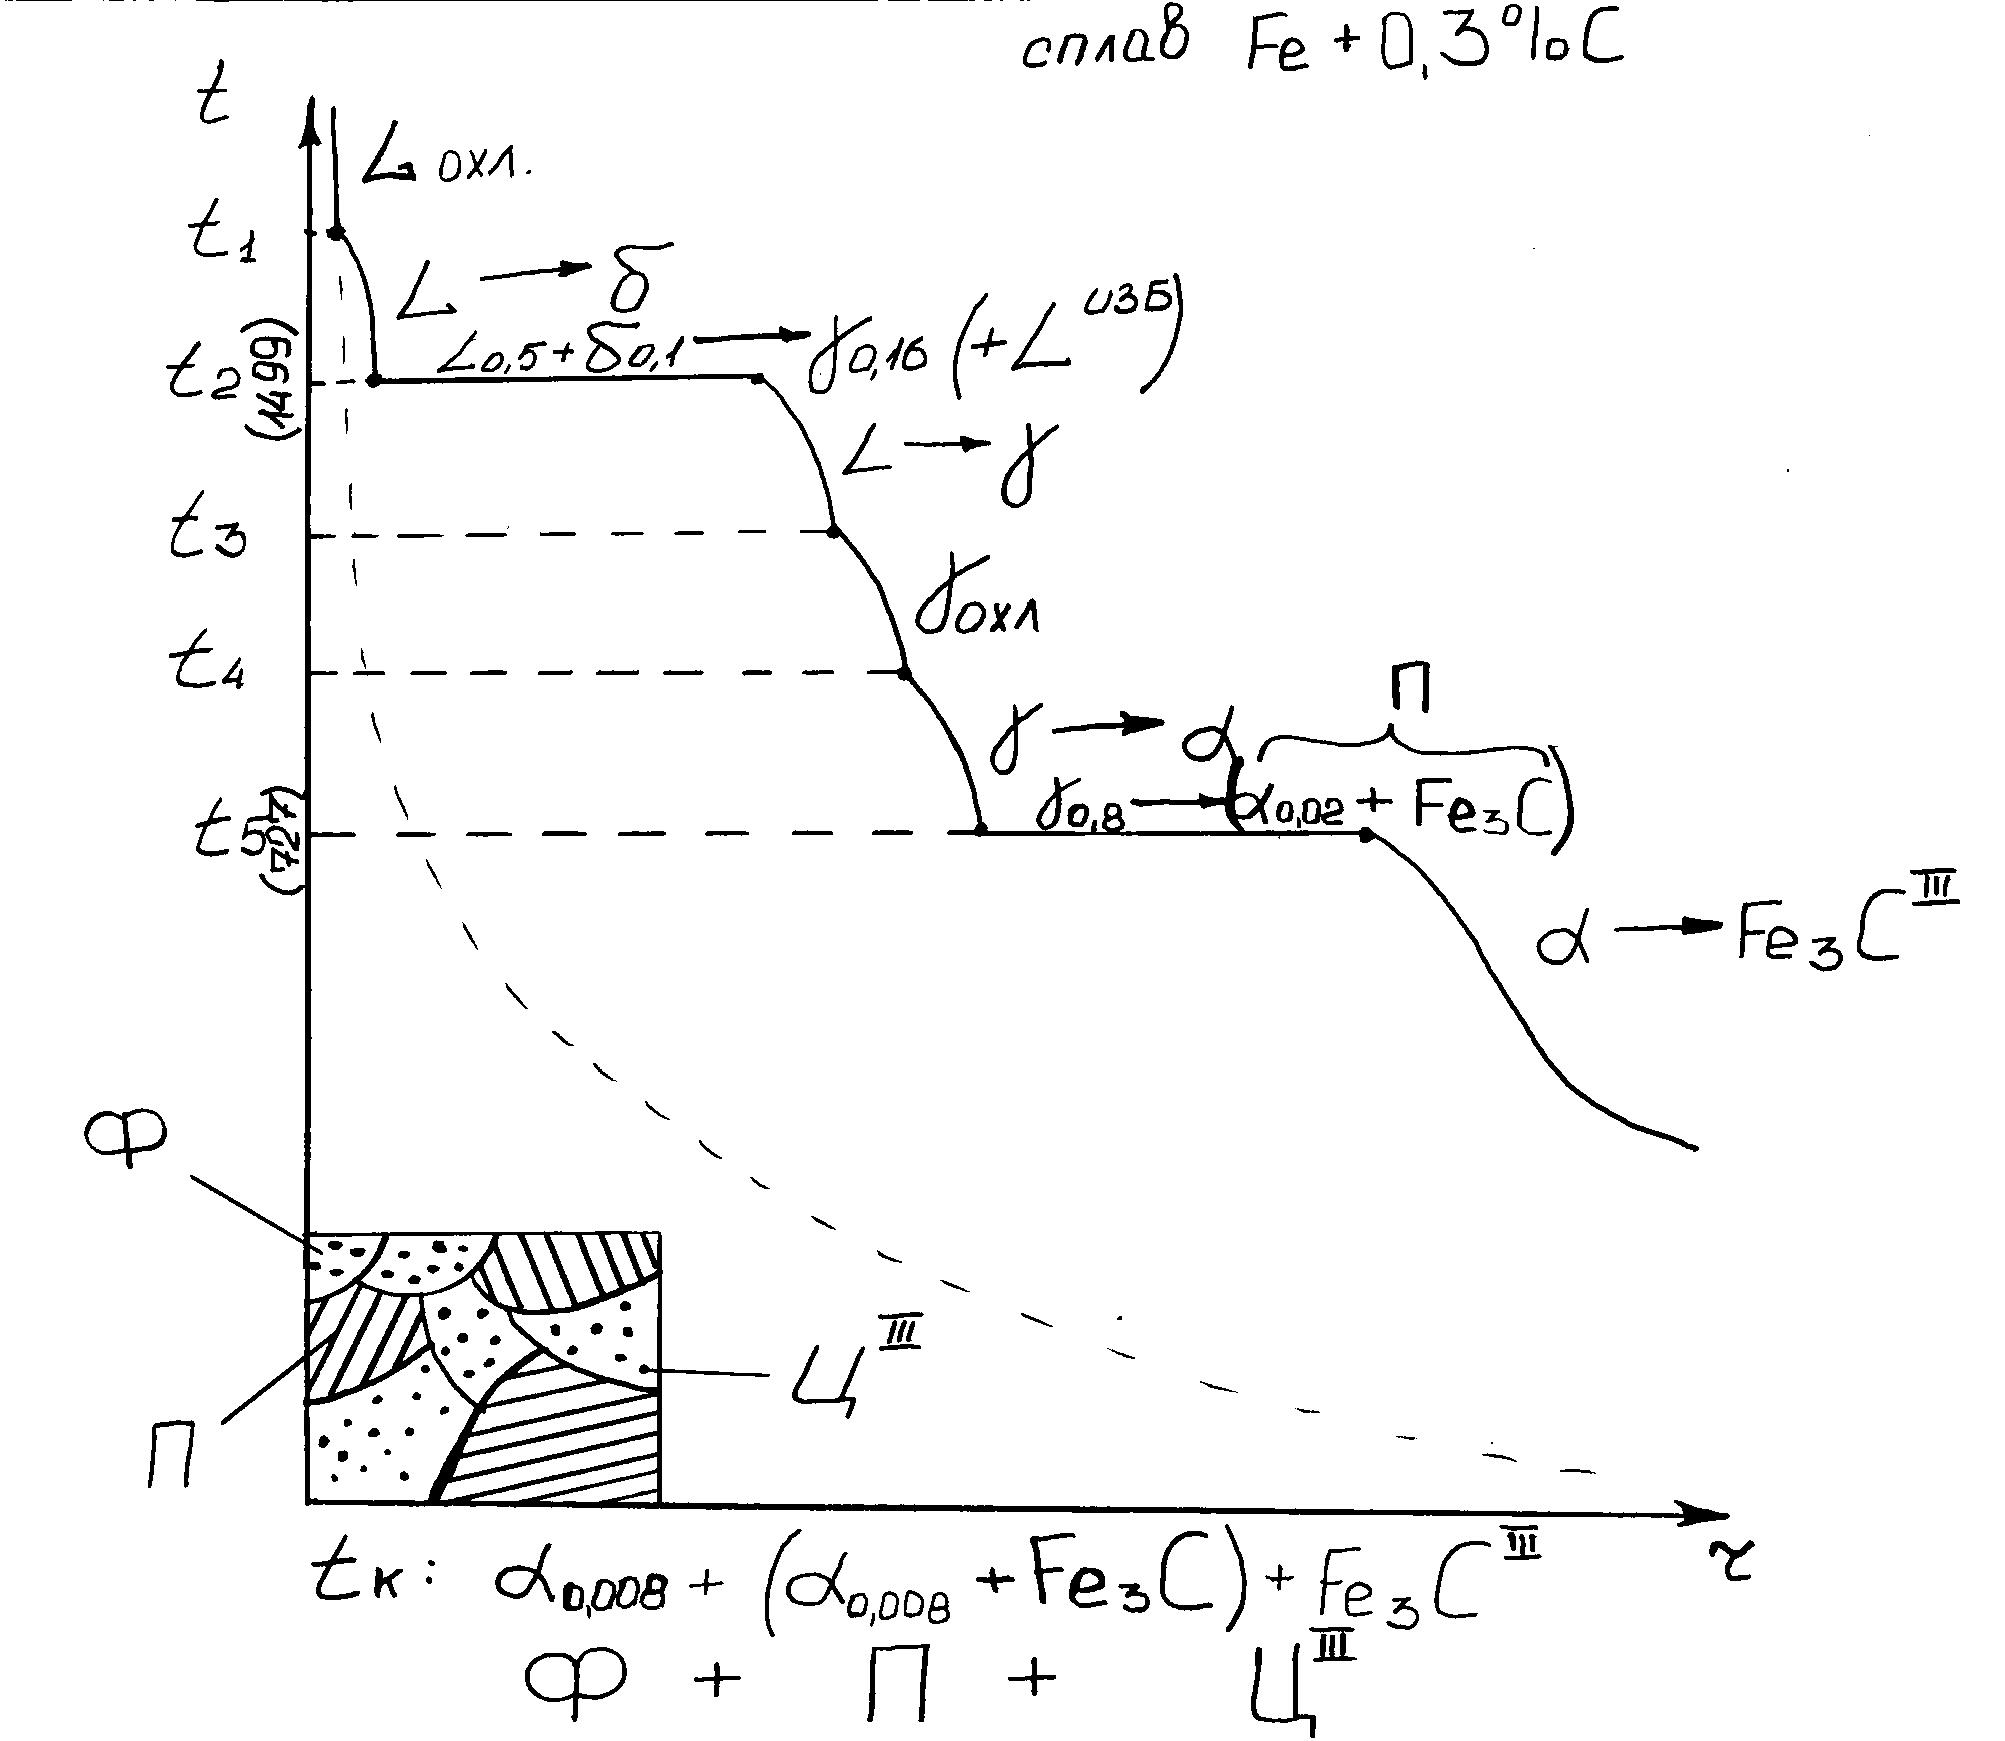 сплав Fe + 0,3%C
t
L охл.
t1
L → δ
t2 (1499)
L0,5 + δ0,1 → γ0,16 (+L^изб)
L → γ
t3
γохл
t4
γ → α
П
t5 (727)
γ0,8 → (α0,02 + Fe3C)
α → Fe3C^III
Ф
Ц^III
П
τ
tк: α0,008 + (α0,008 + Fe3C) + Fe3C^III
Ф + П + Ц^III